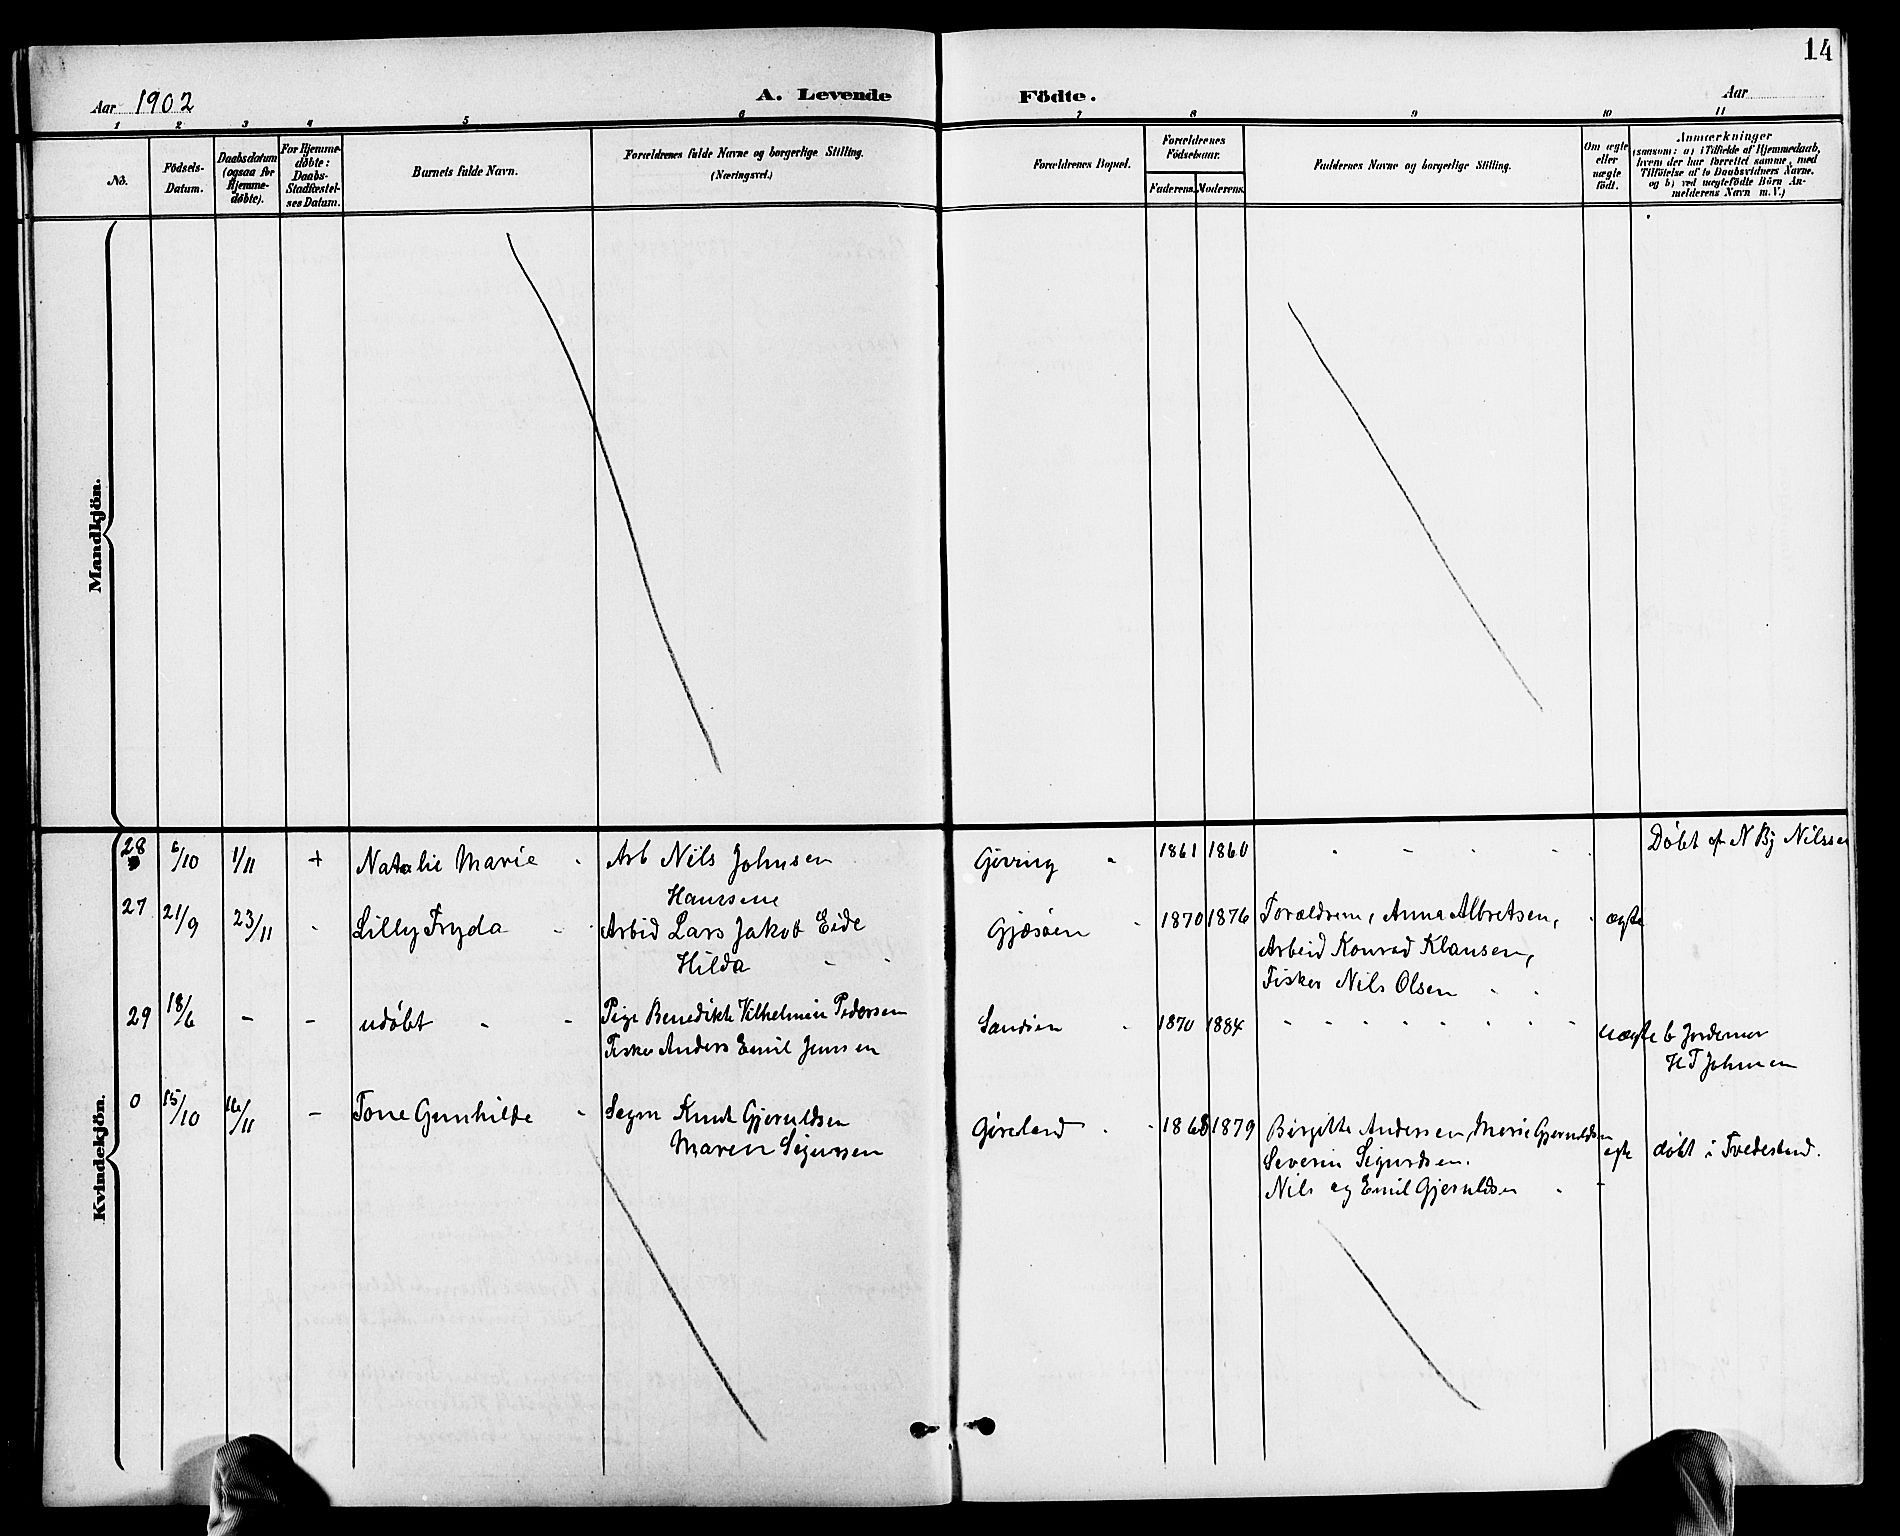 14
Aar 1902
A. Levende Födte.
Aar
1 2 3 4 5 6 7 8 9 10 11
No.
Födsels-Datum.
Daabsdatum (ogsaa for Hjemme-døbte).
For Hjemme-døbte: Daabs-Stadfæstel-ses Datum.
Barnets fulde Navn.
Forældrenes fulde Navne og borgerlige Stilling.
(Næringsvei.)
Forældrenes Bopæl.
Forældrenes Födselsaar.
Faderens. Moderens.
Faddernes Navne og borgerlige Stilling.
Om ægte eller uægte født.
Anmærkninger
(saasom: a) i Tilfælde af Hjemmedaab,
hvem der har forrettet samme, med
Tilföielse af to Daabsvidners Navne,
og b) ved uægtefödte Börn An-
melderens Navn m.V.)
Mandkjön.
Kvindekjön.
28 6/10 1/11 + Natalie Marie Arb Nils Johnsen Gjeving 1861 1860 Døbt af N Bj Nilssen
Hanssine
27 21/9 23/11 Lilly Fryda Arbid Lars Jakob Eide Gjæsøen 1870 1876 Forældrene, Anna Albretsen, ægte
Hilda Arbeid Konrad Klausen,
Fisker Nils Olsen
29 18/6 - - udöbt Pige Benedikte Vilhelmine Pedersen Sandøen 1870 1884 uægte b Jordemor
Fisker Anders Emil Jensen H T Johnsen
0 15/10 16/11 - Tone Gunhilde Sagm Knut Gjeruldsen 1868 1879 Birgitte Andersen, Marie Gjeruldsen egte døbt i Tvedestrand.
Maren Sigurssen Severin Sigurdsen.
Nils og Emil Gjeruldsen